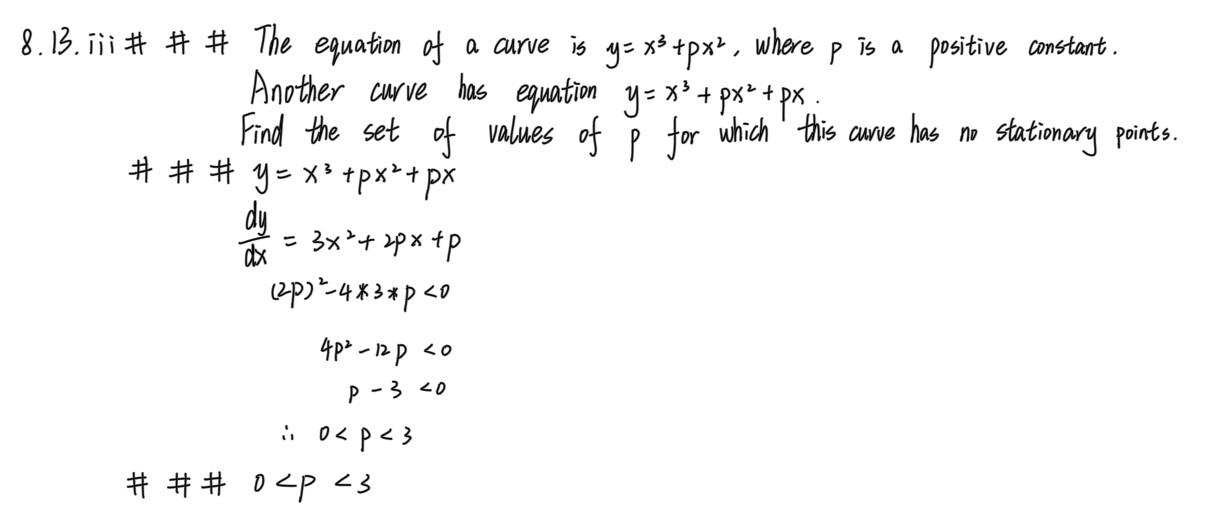 8.13.iii # # # The equation of a curve is y = x³ + px², where p is a positive constant.
Another curve has equation y = x³ + px² + px.
Find the set of values of p for which this curve has no stationary points.
# # # y = x³ + px² + px
dy/dx = 3x² + 2px + p
(2p)² - 4 * 3 * p < 0
4p² - 12p < 0
p - 3 < 0
∴ 0 < p < 3
# # # 0 < p < 3